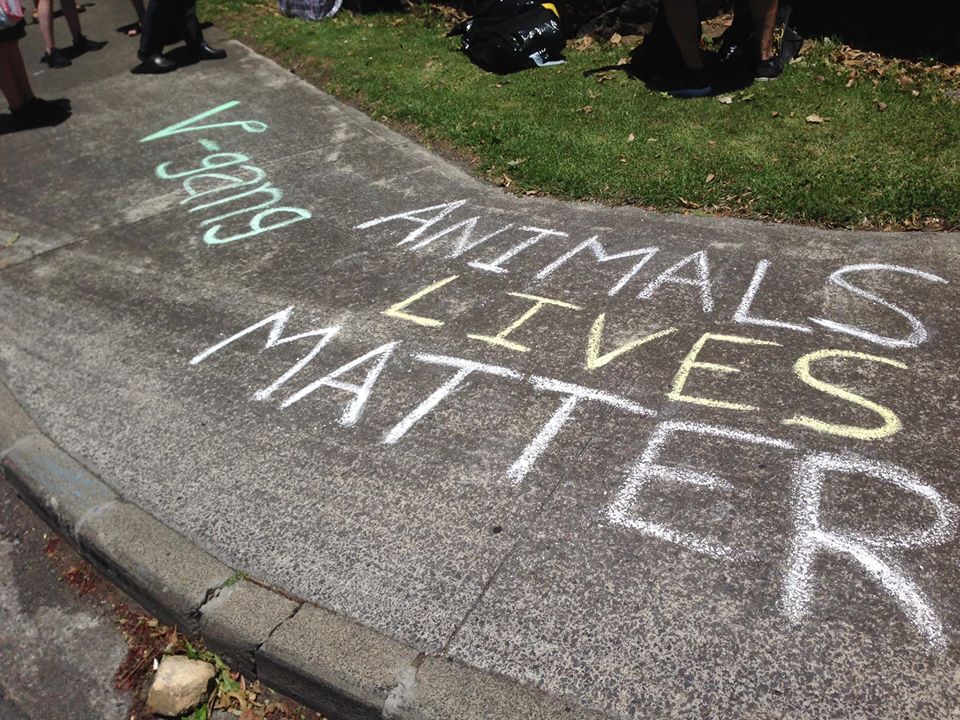 V-gang
ANIMALS
LIVES
MATTER